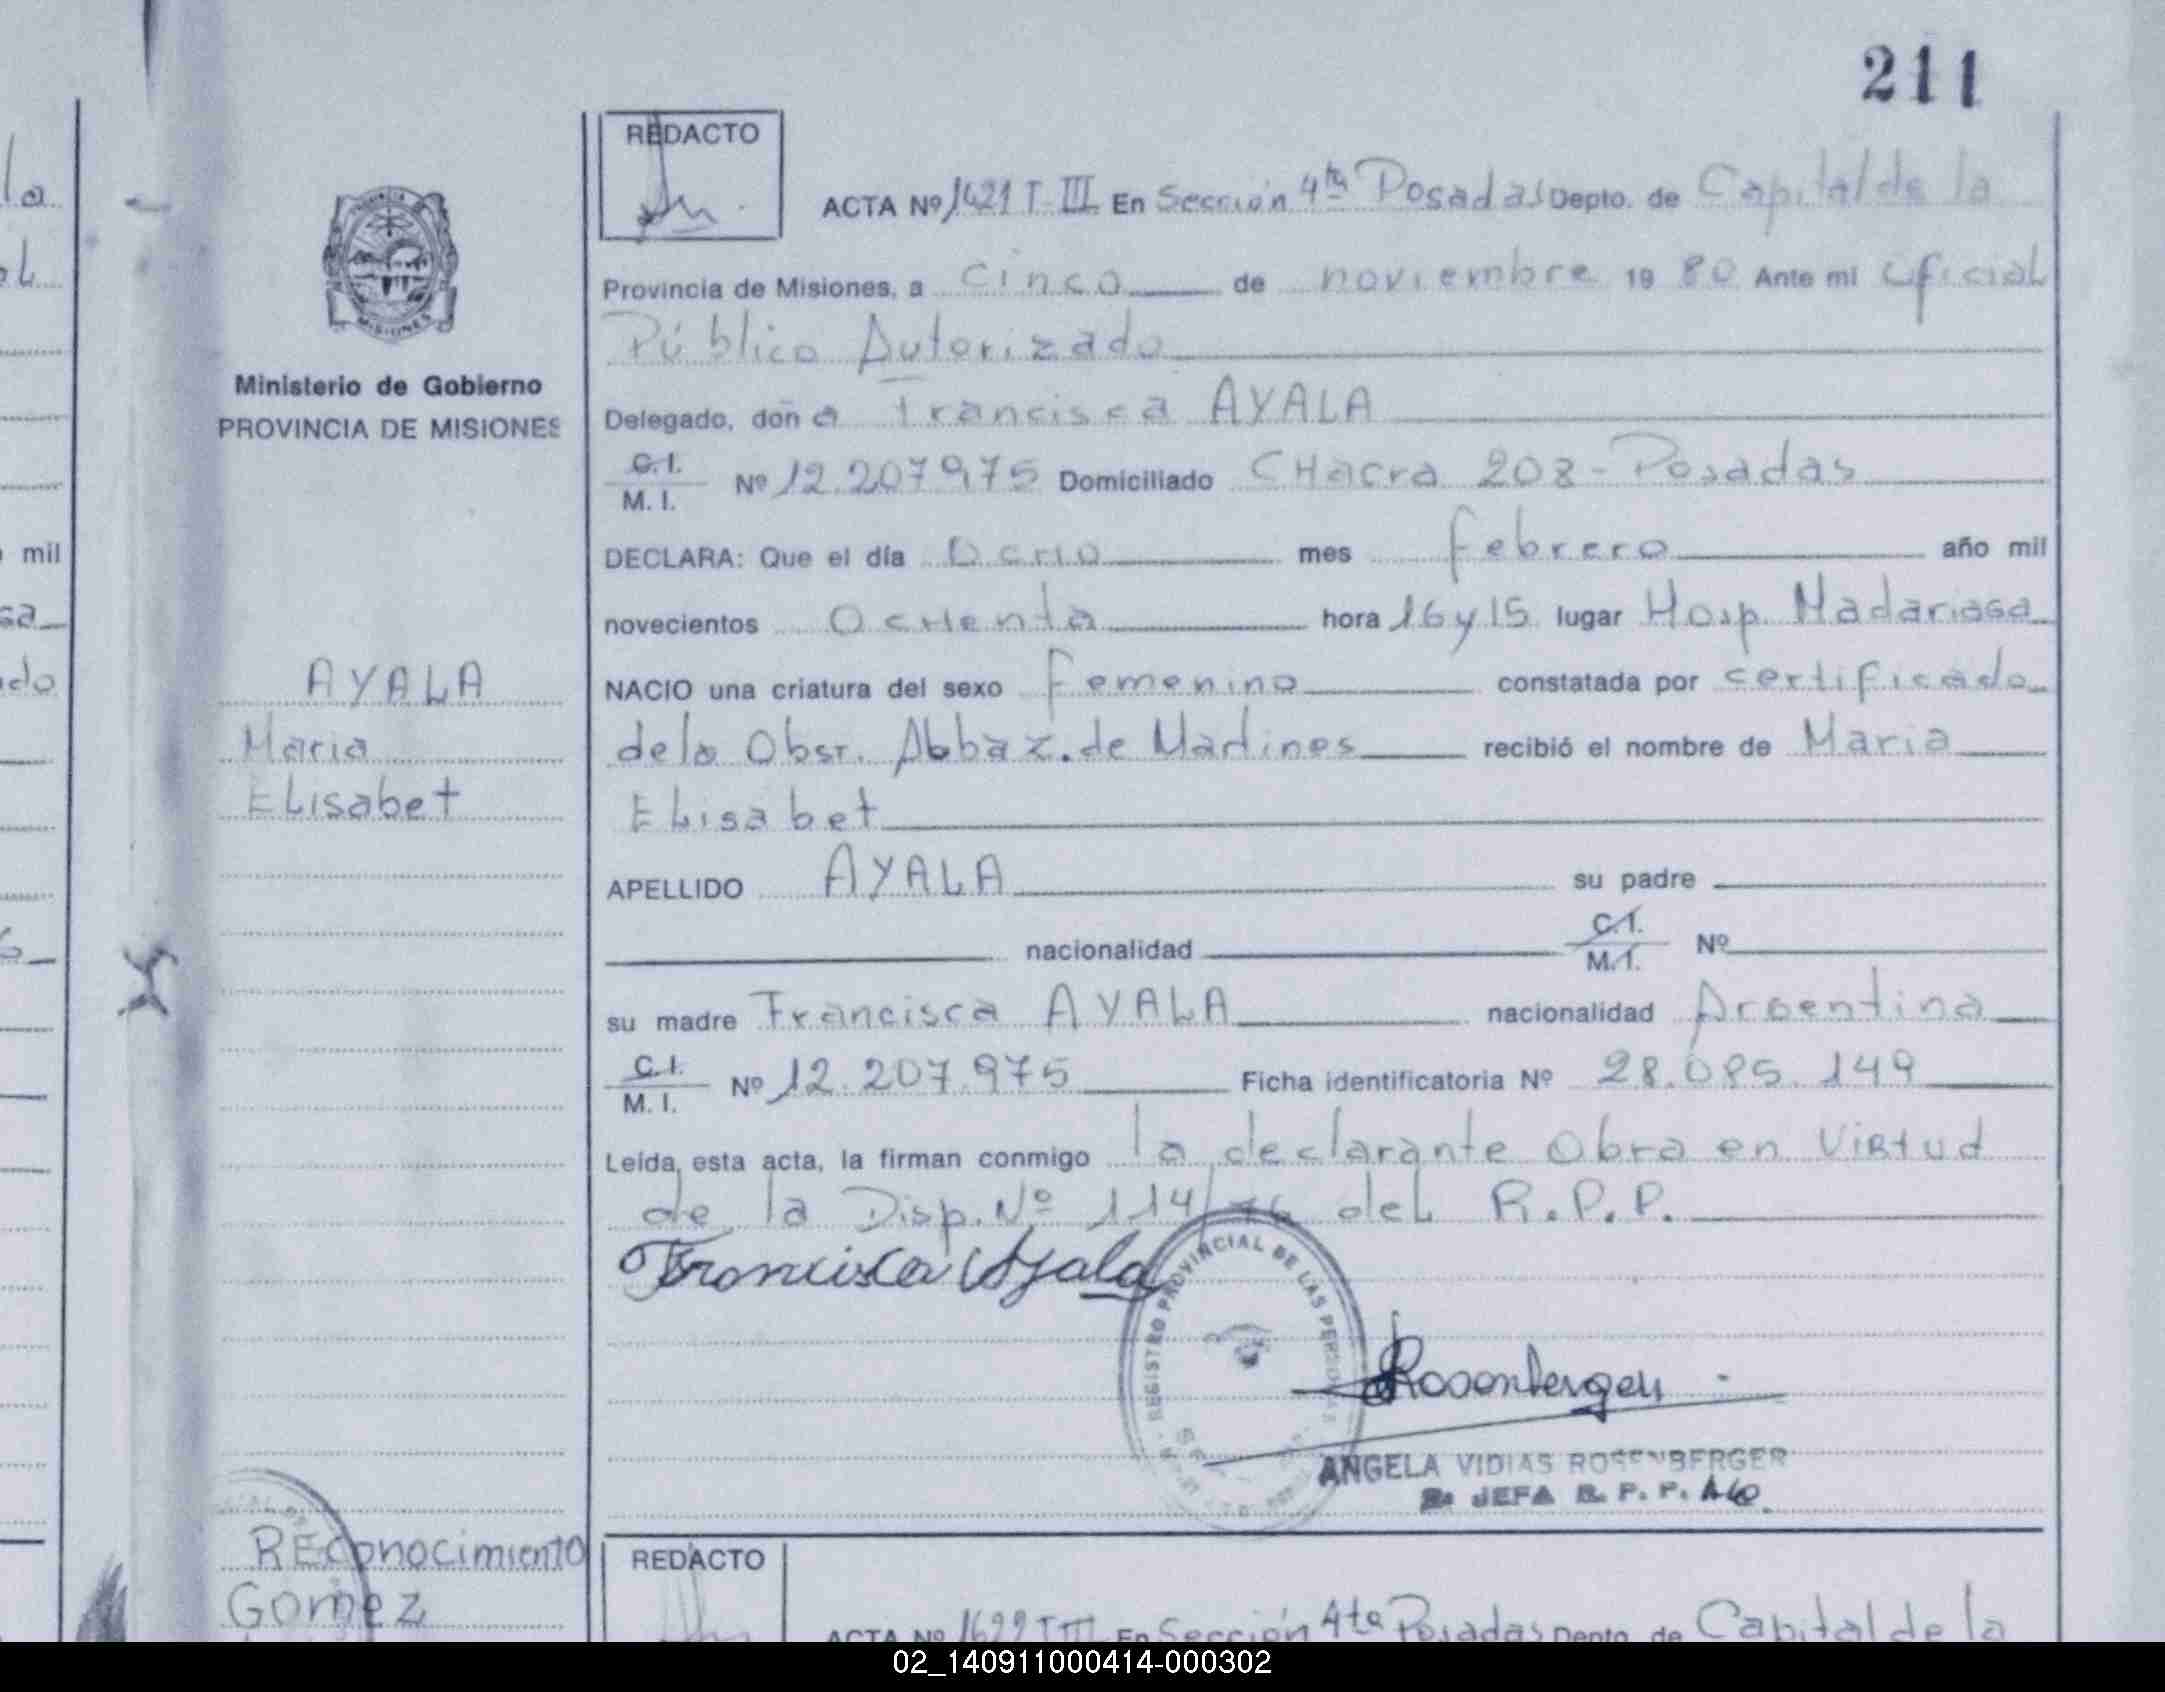 211
la
REDACTO
ACTA Nº 1621 T-III En Sección 4ta Posadas Depto. de Capital de la
Provincia de Misiones, a cinco de noviembre 1980 Ante mi Oficial
Público Autorizado
Delegado, doña Francisca AYALA
C.I. M.I. Nº 12.207.975 Domiciliado CHacra 208 - Posadas
DECLARA: Que el día OcHo mes febrero año mil
novecientos OcHenta hora 16 y 15 lugar Hosp. Madariaga
NACIO una criatura del sexo femenino constatada por certificado
de la Obst. Abbaz. de Martines recibió el nombre de Maria
Elisabet
APELLIDO AYALA su padre
nacionalidad C.I. M.I. Nº
su madre Francisca AYALA nacionalidad Argentina
C.I. M.I. Nº 12.207.975 Ficha identificatoria Nº 28.085.149
Leída, esta acta, la firman conmigo la declarante Obra en Virtud
de la Disp. Nº 114/76 del R.P.P.
Francisca Ayala
REGISTRO PROVINCIAL DE LAS PERSONAS
Rosenberger
ANGELA VIDIAS ROSENBERGER
JEFA R. P. P.
MISIONES
Ministerio de Gobierno
PROVINCIA DE MISIONES
AYALA
Maria
Elisabet
mil
REconocimiento
Gomez
REDACTO
ACTA Nº 1622 T III En Sección 4ta Posadas Depto. de Capital de la
02_140911000414-000302